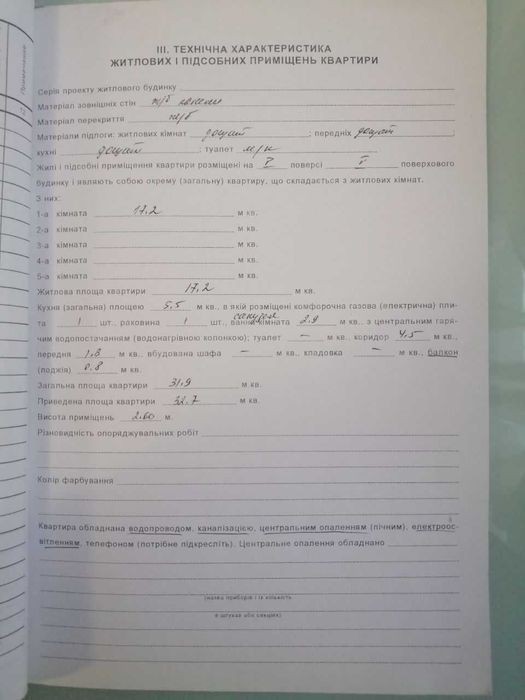 III. ТЕХНІЧНА ХАРАКТЕРИСТИКА
ЖИТЛОВИХ І ПІДСОБНИХ ПРИМІЩЕНЬ КВАРТИРИ
Серія проекту житлового будинку
Матеріал зовнішніх стін з/б панели
Матеріал перекриття з/б
Матеріали підлоги: житлових кімнат дощат ; передніх дощат ;
кухні дощат ; туалет м/п
Жилі і підсобні приміщення квартири розміщені на V поверсі V поверхового
будинку і являють собою окрему (загальну) квартиру, що складається з житлових кімнат.
З них:
1-а кімната 17,2 м кв.
2-а кімната м кв.
3-а кімната м кв.
4-а кімната м кв.
5-а кімната м кв.
Житлова площа квартири 17,2 м кв.
Кухня (загальна) площею 5,5 м кв., в якій розміщені комфорочна газова (електрична) пли-
та 1 шт., раковина 1 шт., санузел ванна кімната 2,9 м кв., з центральним гаря-
чим водопостачанням (водонагрівною колонкою); туалет — м кв., коридор 4,5 м кв.,
передня 1,8 м кв., вбудована шафа — м кв., кладовка — м кв., балкон
(лоджія) 0,8 м кв.
Загальна площа квартири 31,9 м кв.
Приведена площа квартири 32,7 м кв.
Висота приміщень 2,60 м.
Різновидність опоряджувальних робіт
Колір фарбування
Квартира обладнана водопроводом, каналізацією, центральним опаленням (пічним), електроос-
вітленням, телефоном (потрібне підкресліть). Центральне опалення обладнано
(назва приборів і їх кількість
в штуках або секціях)